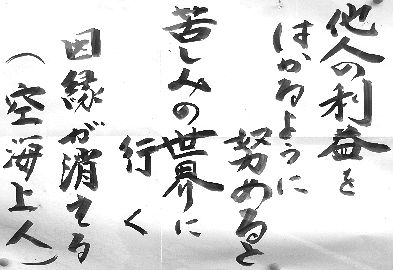 他人の利益を
はかるように
努めると
苦しみの世界に
行く
因縁が消える
(空海上人)